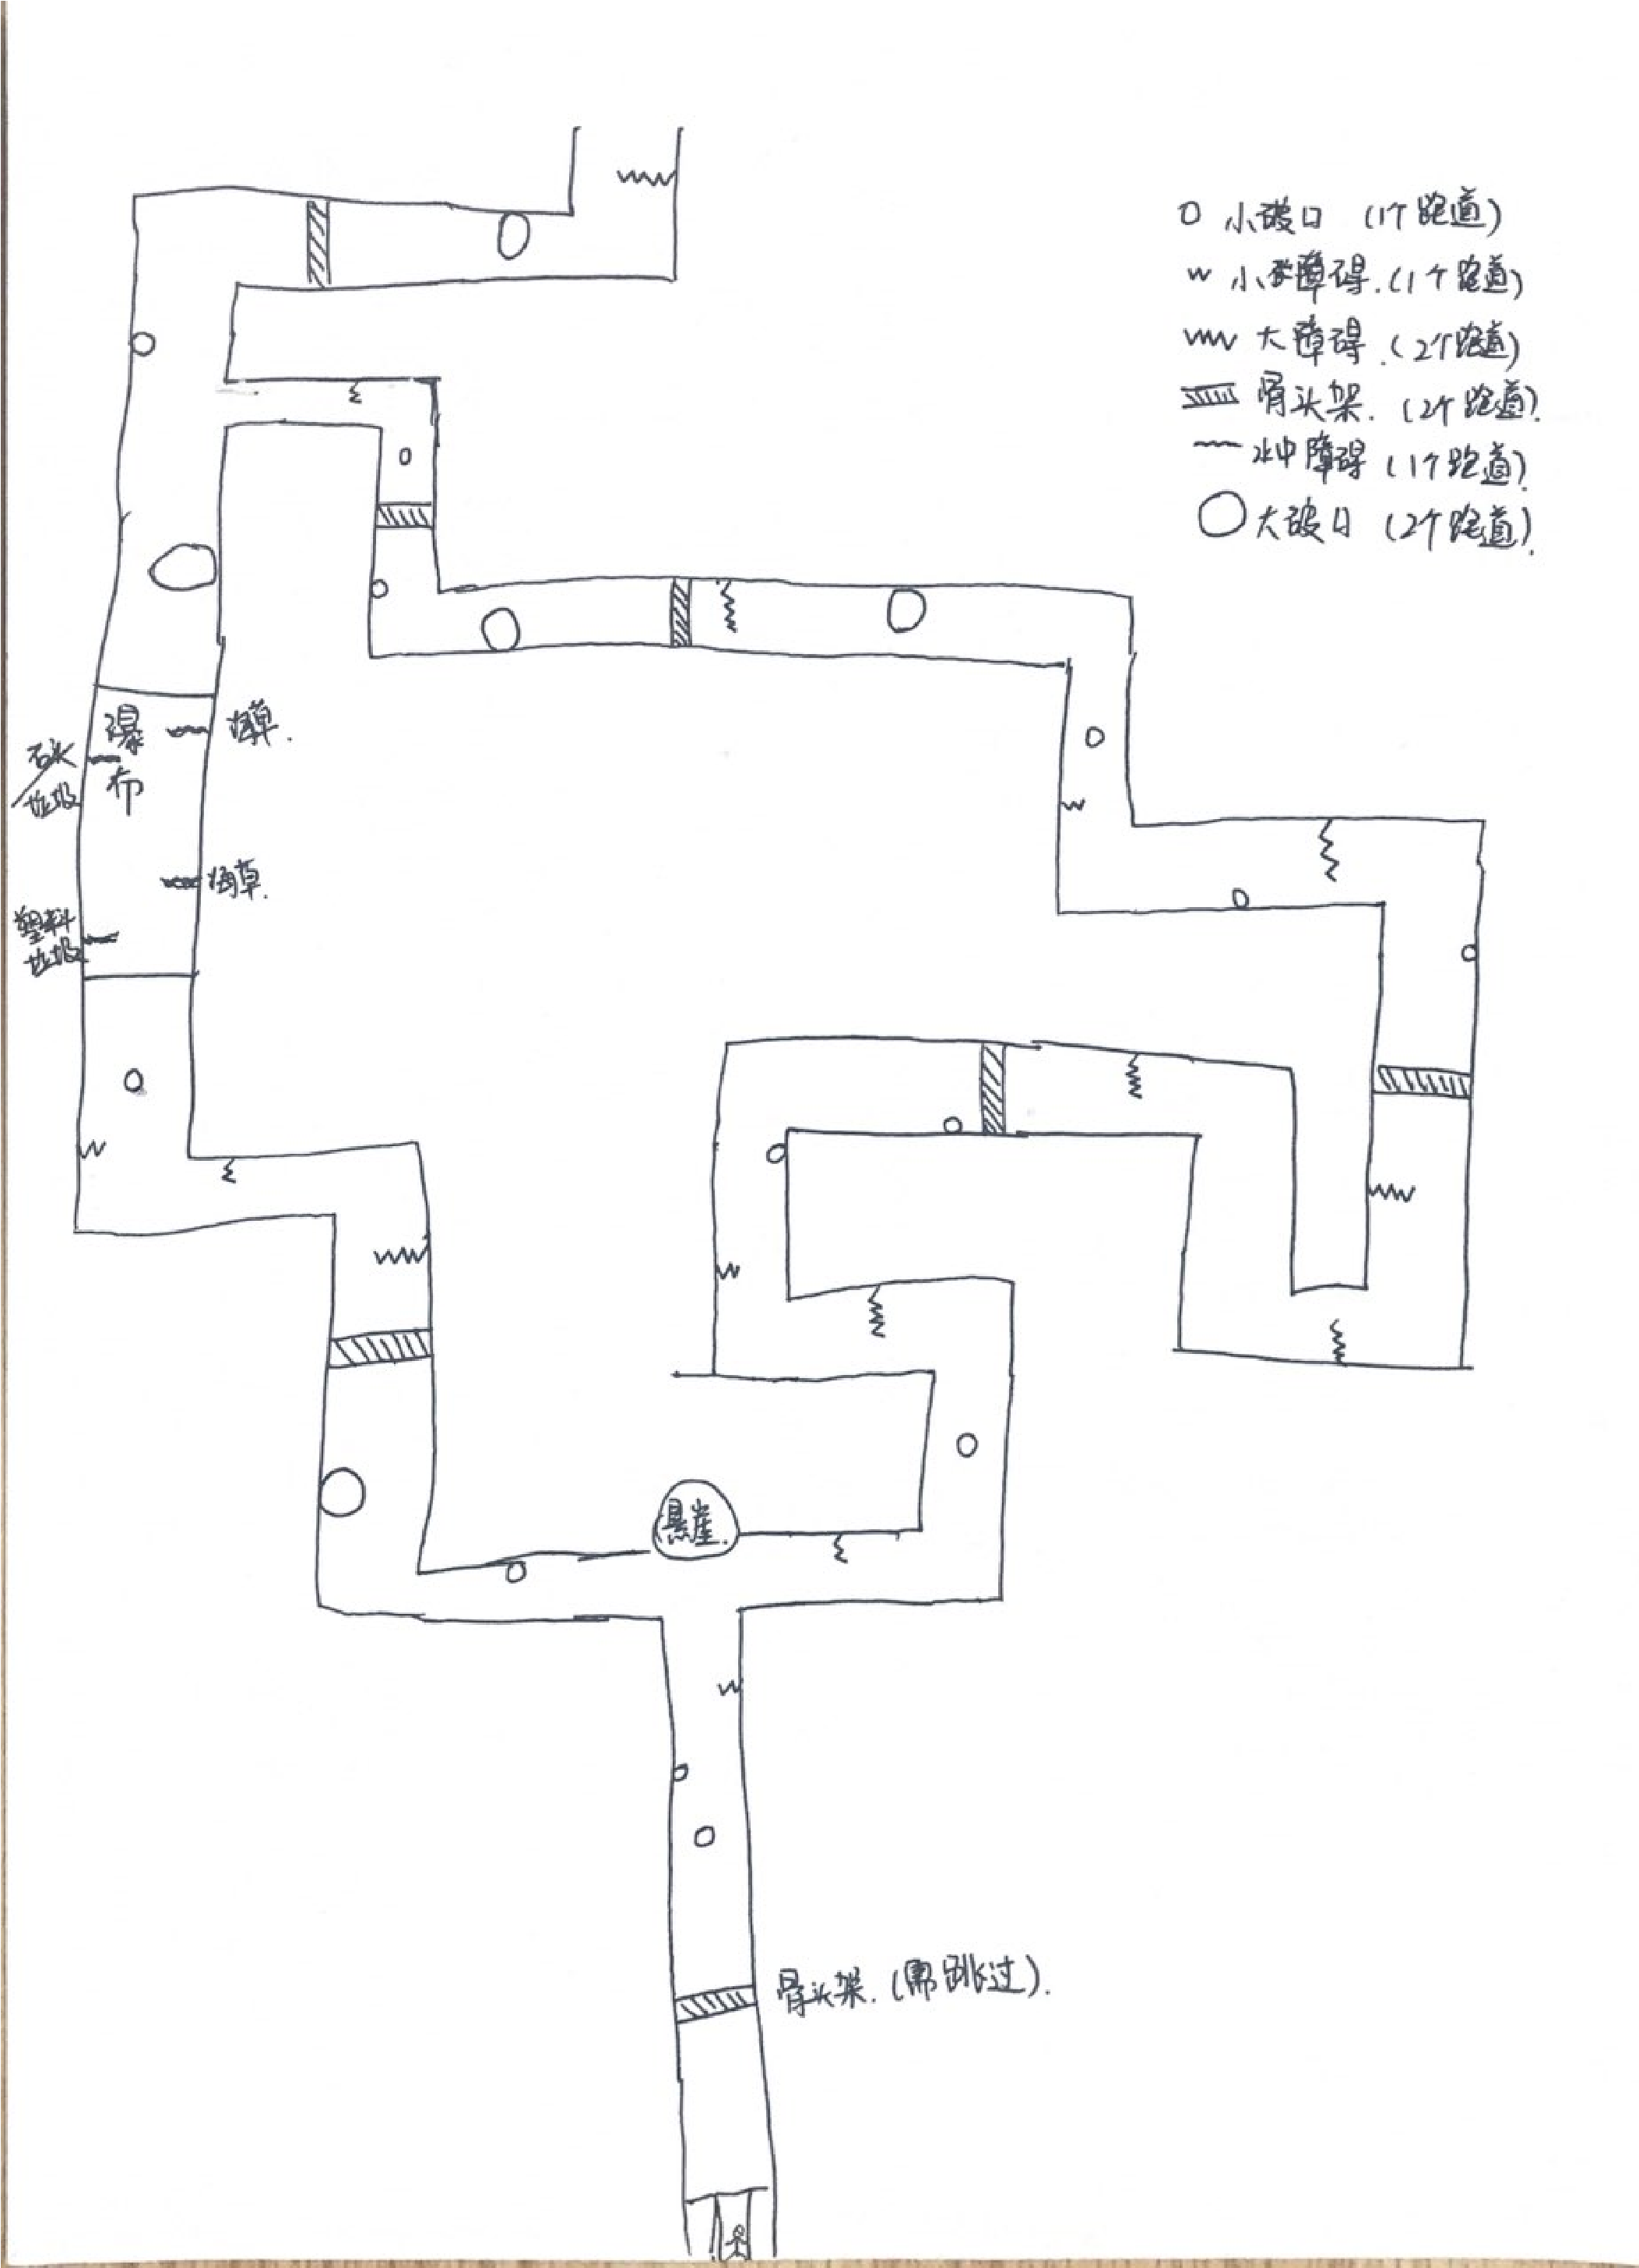 小破口 (1个跑道)
小障碍.(1个跑道)
大障碍.(2个跑道)
骨头架.(2个跑道).
水中障碍(1个跑道).
大破口(2个跑道).
瀑布
海草.
石头
垃圾
海草.
塑料
垃圾
悬崖.
骨头架.(需跳过).